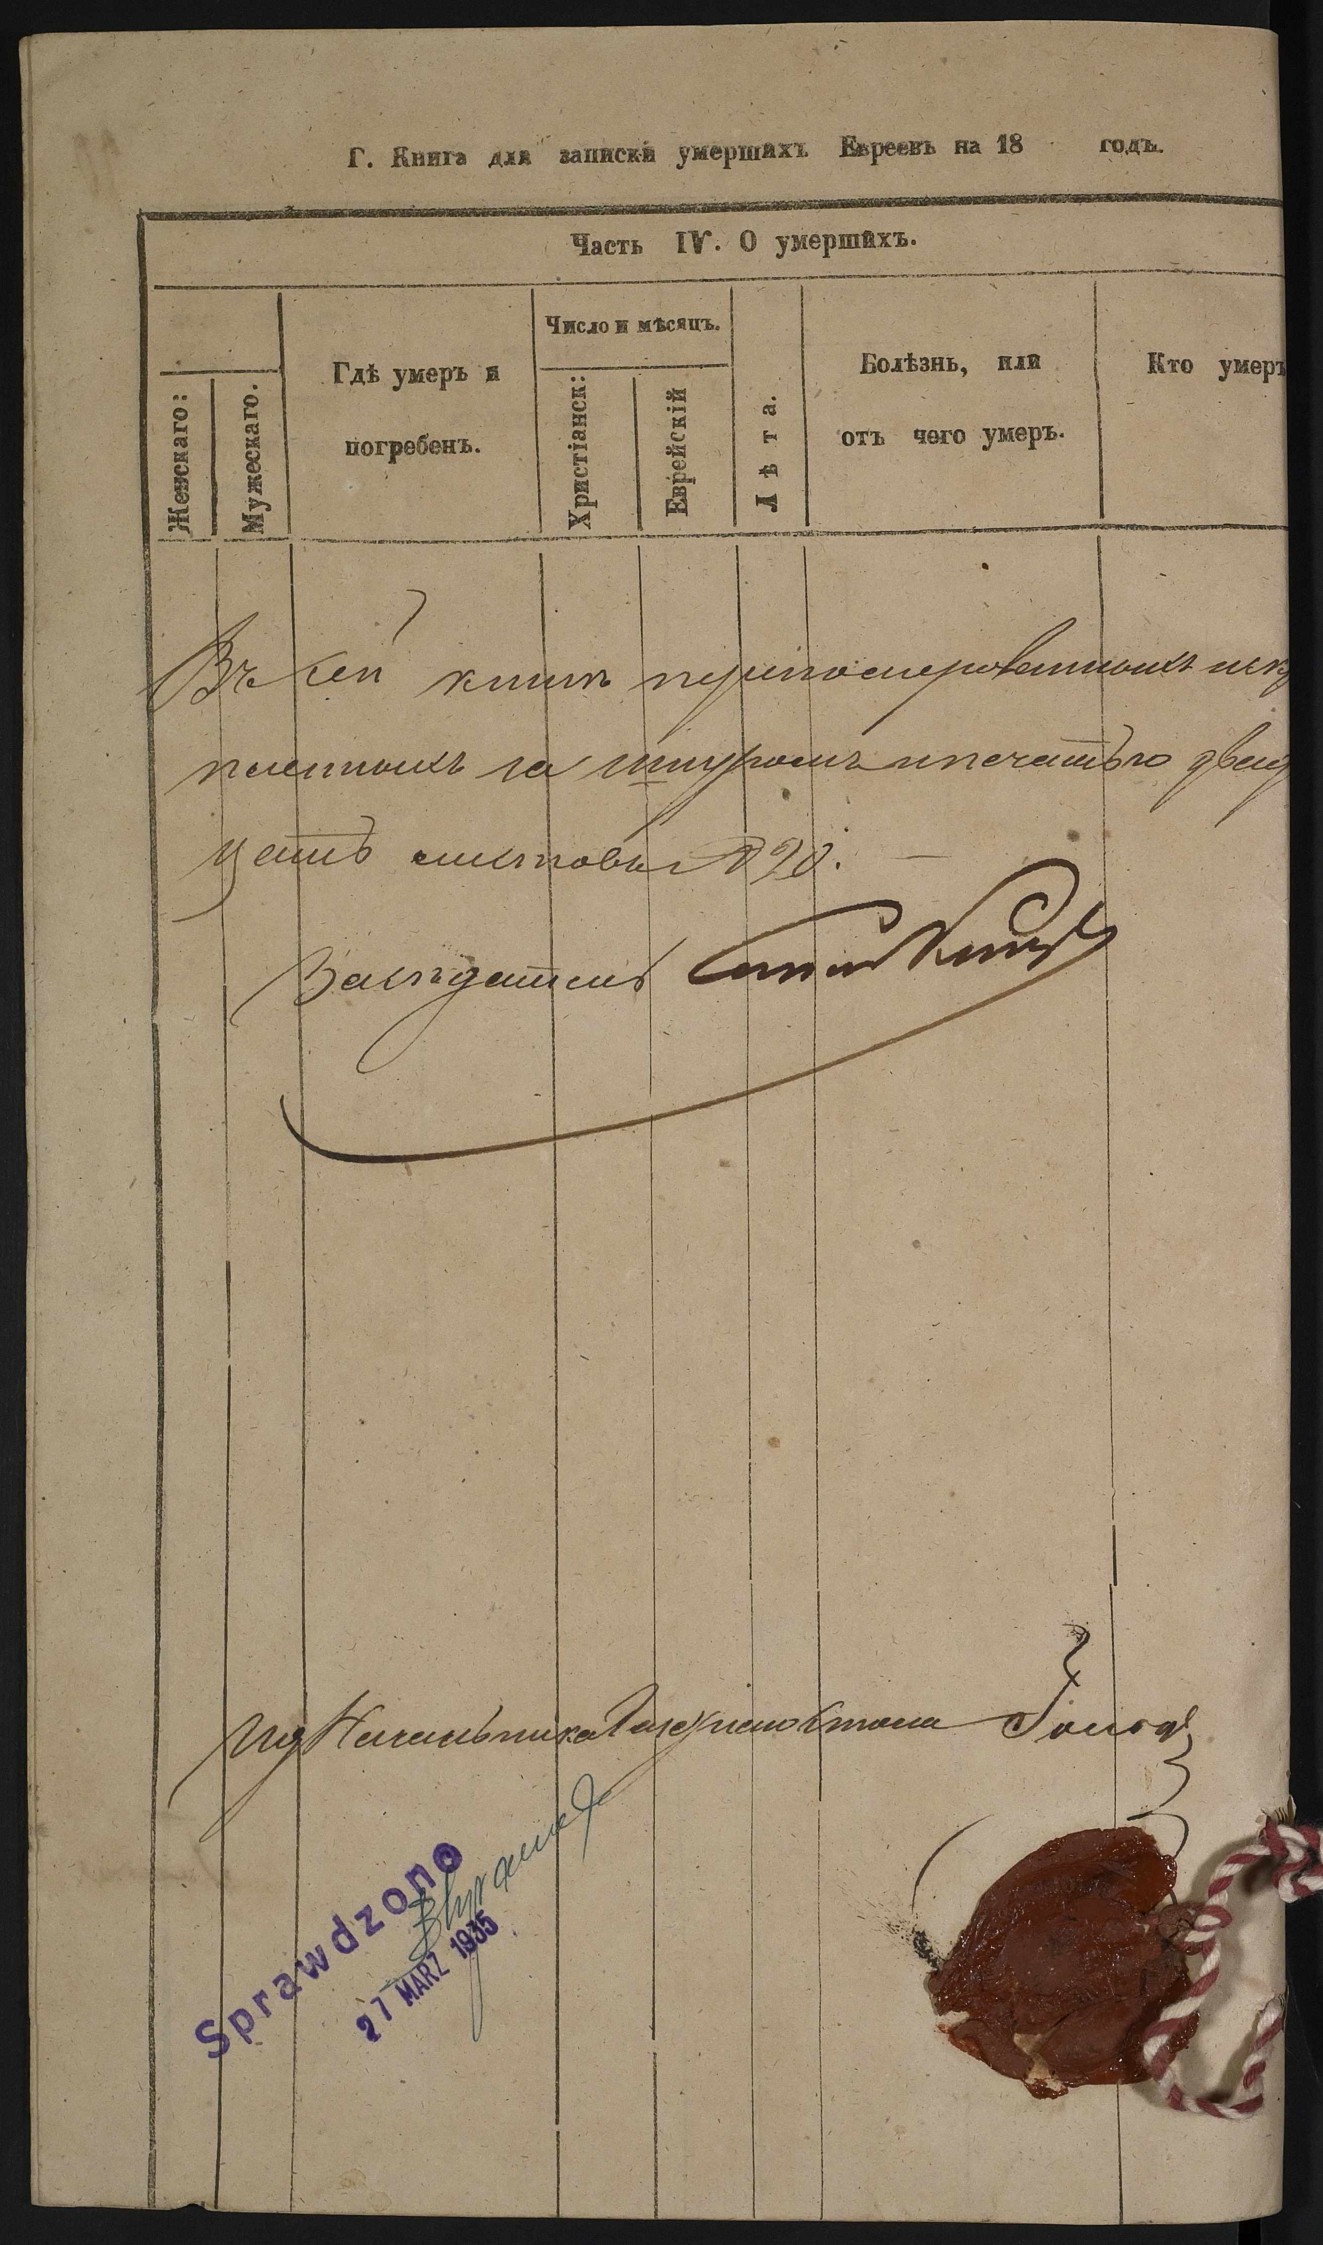 Г. Книга для записки умершихъ Евреевъ на 18 годъ.
Часть IV. О умершихъ.
Женскаго:
Мужескаго.
Гдѣ умеръ и
погребенъ.
Число и мѣсяцъ.
Христіанск:
Еврейскій
Лѣта.
Болѣзнь, или
отъ чего умеръ.
Кто умеръ
Въ сей книгѣ пронумерованныхъ
за шнуромъ и печатью двад
цать листовъ 20.
Засѣдатель
Ид Начальника Стола
Sprawdzono
27 MARZ 1935